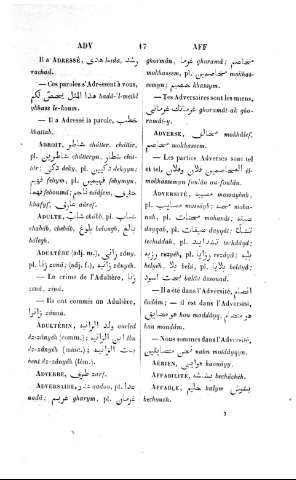 ADV 17 AFF
Il a ADRESSÉ, هدى hada, رشد
rachad.
— Ces paroles s'Adressent à vous,
هذا المثل يخصّ لكم hadâ-'l-methl
ykhass le-koum.
— Il a Adressé la parole, خطب
khattab.
ADROIT, شاطر châtter, châtter,
pl. شاطرين châtteryn, شطار chot-
târ; ذكى deky, pl. ذكيين dekyyn;
فهيم fehym, pl. فهيمين fehymyn,
فهما fehoumâ; ناجم nâdjem, خفيف
khafyf, عارف âaref.
ADULTE, شاب châbb, pl. شباب
chabâb, chebâb, بلوغ belough, بالغ
bâlegh.
ADULTÈRE (adj. m.), زانى zâny,
pl. زنا zond (adj. f.), زانيه zânyeh.
— Le crime de l'Adultère, زنا
zenâ, zinâ.
— Ils ont commis un Adultère,
زانوا zânoù.
ADULTÉRIN, ولد الزانيه oueled
êz-zânyéh (comm.); ابن الزانيه êbn
êz-zânyéh (masc.); بنت الزانيه
bent êz-zânyéh (fém.).
ADVERBE, ظرف zarf.
ADVERSAIRE, عدو adou, pl. عدا
aadâ; غريم gharym, pl. غرمان
ghormân, غرما ghoramâ; مخاصم
mokhassem, pl. مخاصمين mokhas-
semyn; خصيم khassym.
— Tes Adversaires sont les miens,
غرمانك غرمانى ghoramât-ak gho-
ramât-y.
ADVERSE, مخالف mokhâlef,
مخاصم mokhâssem.
— Les parties Adverses sont tel
et tel, المخاصمين فلان وفلان êl-
mokhâssemyn foulân ou-foulân.
ADVERSITÉ, مصيبه massybéh,
pl. مصايب massâyb; محنه moha-
néh, pl. محنات mohanât; ضيقه
dayqah, pl. ضيقات dayqât; تشدّد
techeddoud, pl. تشدايد techdâyd;
رزيه rezyéh, pl. رزايا rezâyâ; بليه
belyéh, بلا belâ, pl. بلايا belâyâ;
سود بخت bakht âsoued.
— Il a été dans l'Adversité, انضام
êndâm; — il est dans l'Adversité,
هو منضام hou mondâm, هو مضايق
hou moddâyq.
— Nous sommes dans l'Adversité,
نحن متضايقين nahn motdâyqyn.
AÉRIEN, هوايى haouâyy.
AFFABILITÉ, بشاشه bechâchéh.
AFFABLE, حليم halym, بشوش
bechouch.
2